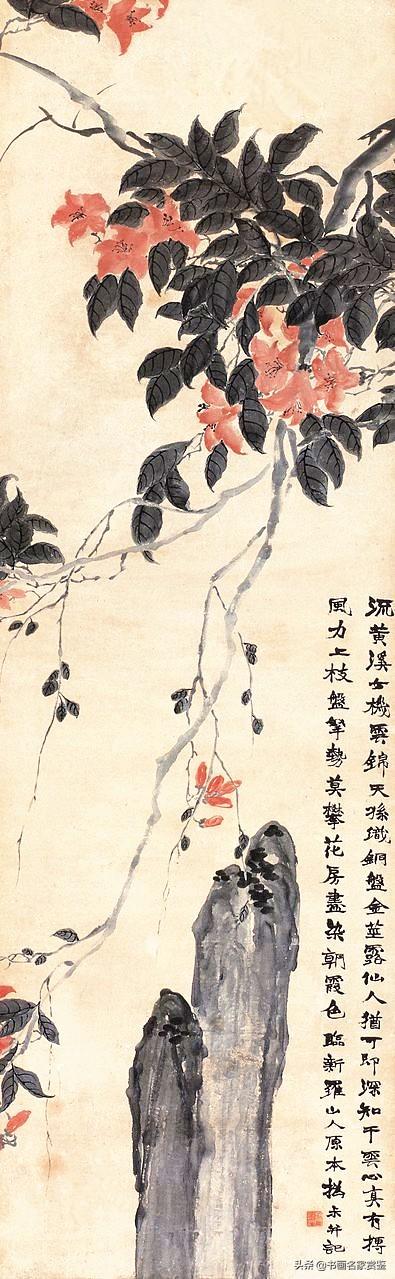 流黄溪女機雲錦天孫織銅盤金莖露仙人猶可即深知干雲心真有摶
風力上枝盤拏勢莫攀花房盡染朝霞色 臨新羅山人原本 并記
头条 @书画名家赏鉴